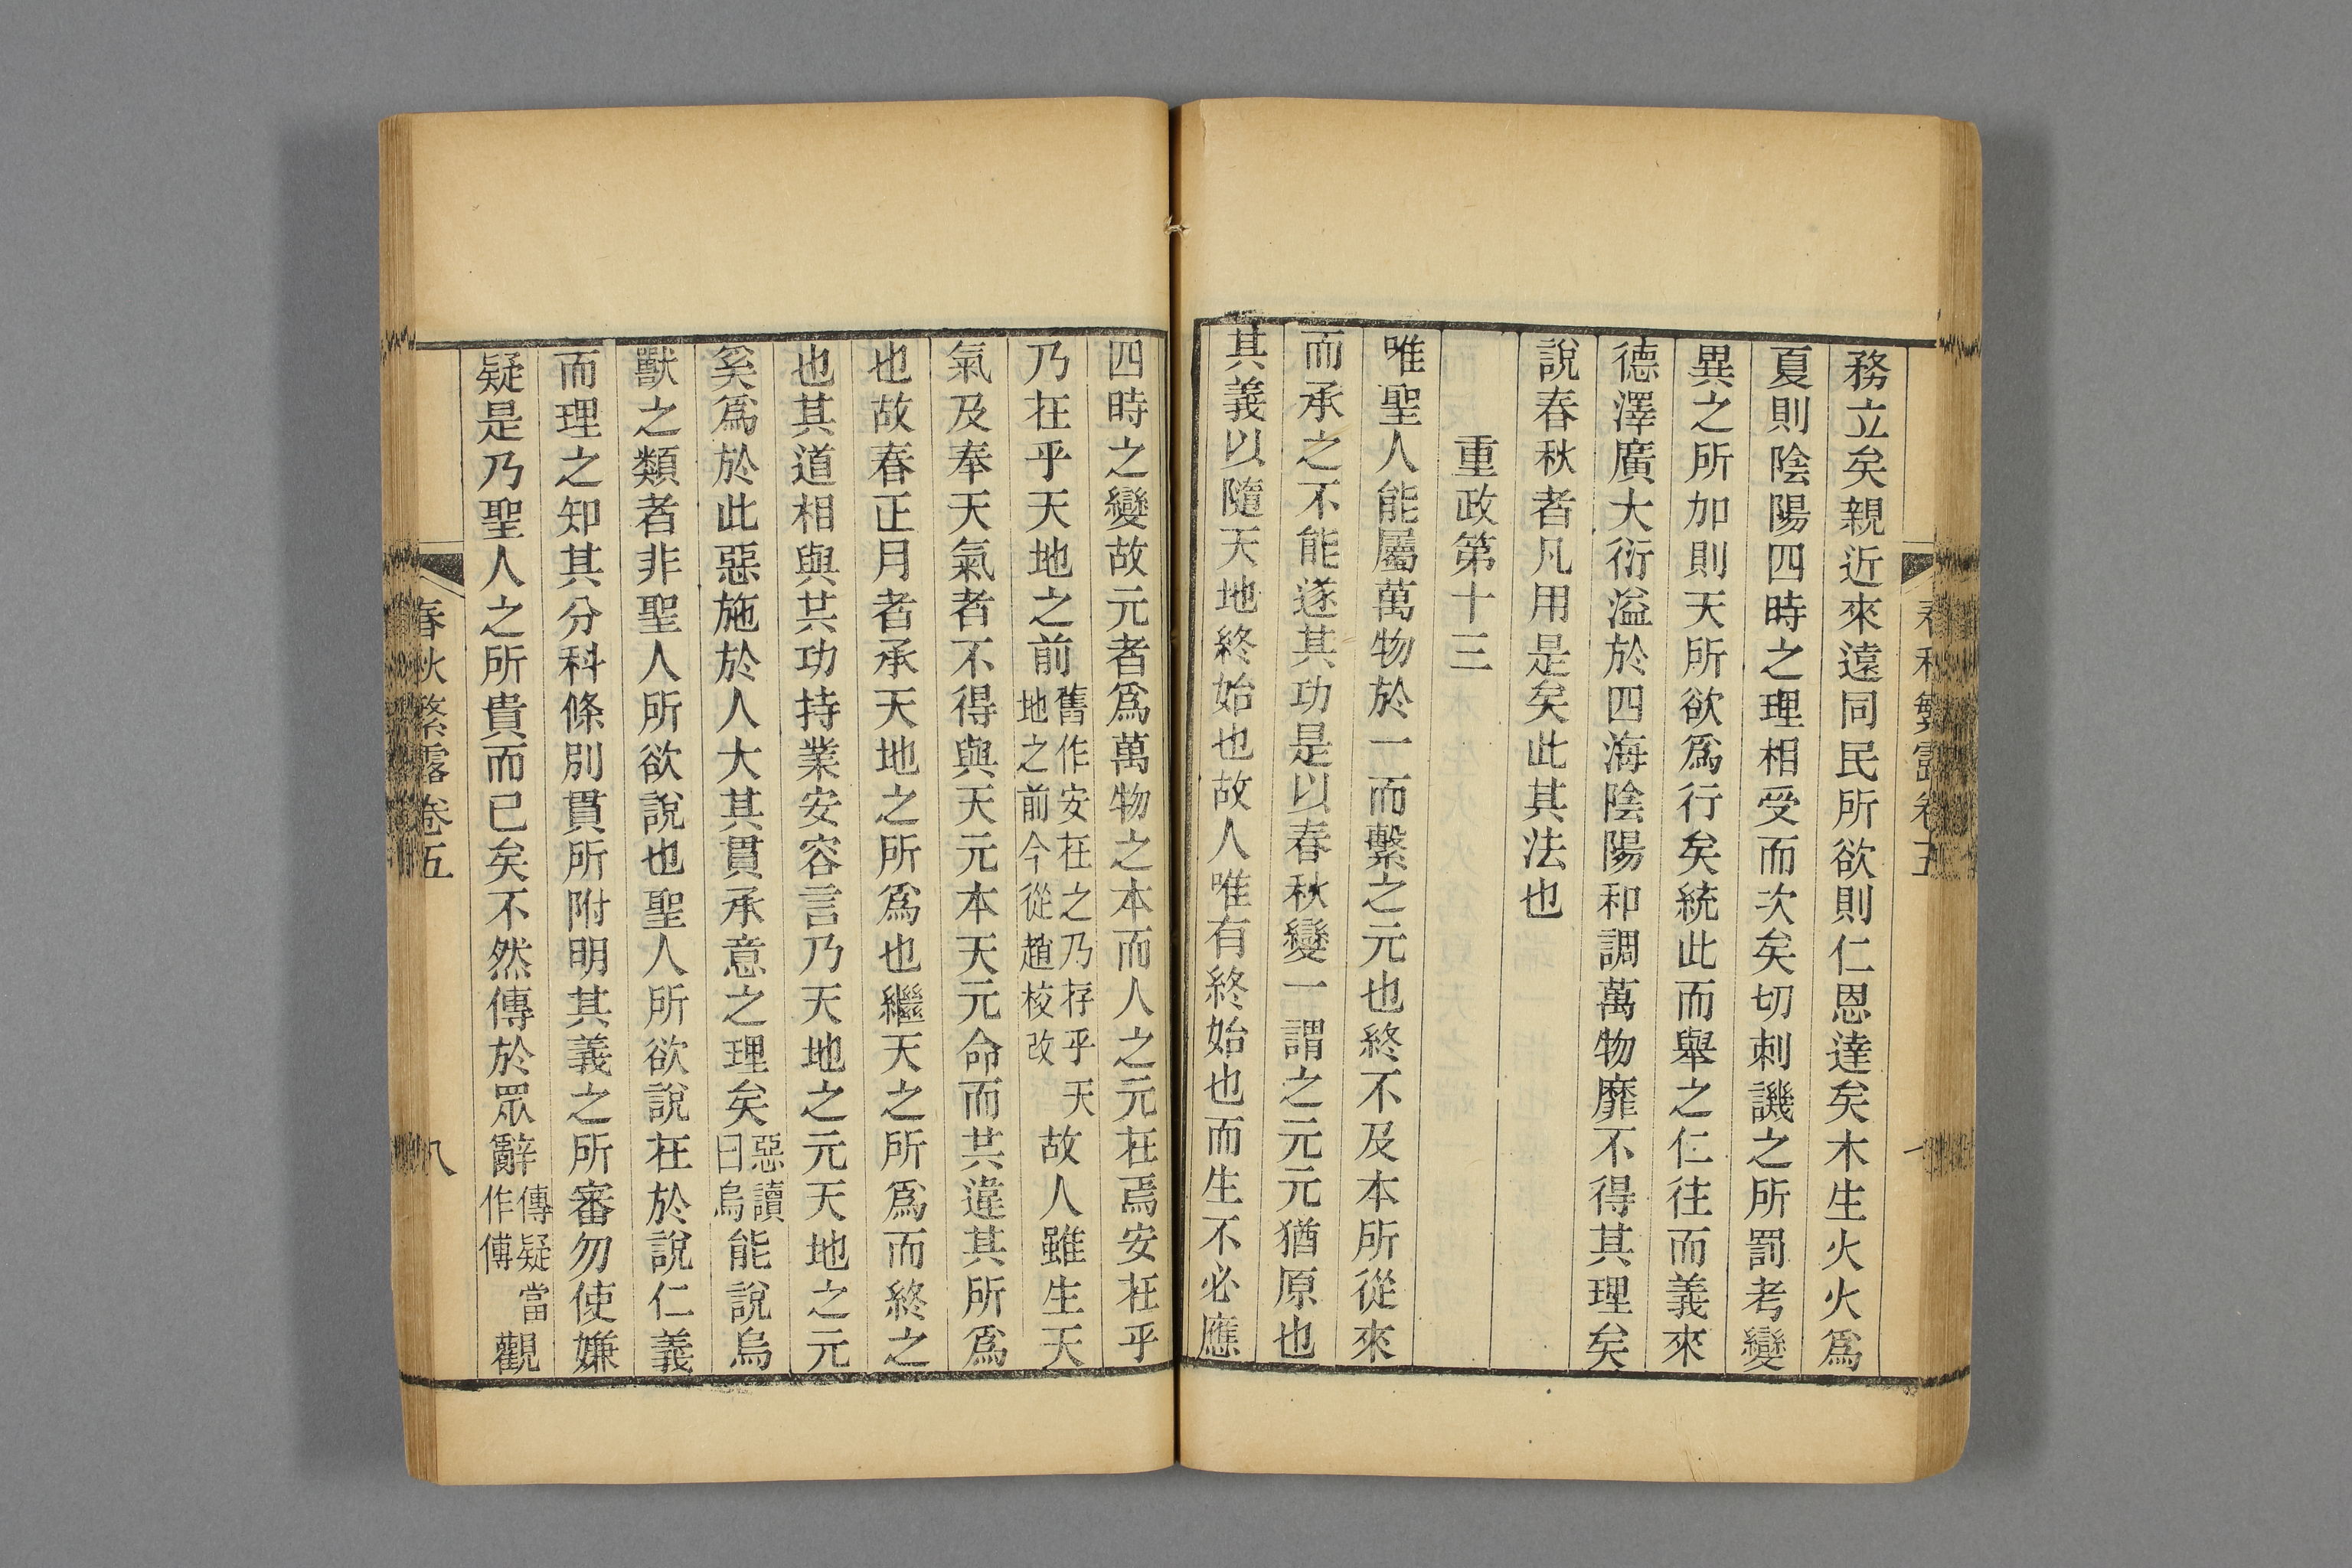 務立矣親近來遠同民所欲則仁恩達矣木生火火爲
夏則陰陽四時之理相受而次矣切刺譏之所罰考變
異之所加則天所欲爲行矣統此而舉之仁往而義來
德澤廣大衍溢於四海陰陽和調萬物靡不得其理矣
說春秋者凡用是矣此其法也
重政第十三
唯聖人能屬萬物於一而繫之元也終不及本所從來
而承之不能遂其功是以春秋變一謂之元元猶原也
其義以隨天地終始也故人唯有終始也而生不必應
四時之變故元者爲萬物之本而人之元在焉安在乎
乃在乎天地之前舊作安在之乃存乎天地之前今從趙校改故人雖生天
氣及奉天氣者不得與天元本天元命而共違其所爲
也故春正月者承天地之所爲也繼天之所爲而終之
也其道相與共功持業安容言乃天地之元天地之元
奚爲於此惡施於人大其貫承意之理矣惡讀曰烏能說鳥
獸之類者非聖人所欲說也聖人所欲說在於說仁義
而理之知其分科條別貫所附明其義之所審勿使嫌
疑是乃聖人之所貴而已矣不然傳於眾辭傳疑當作傅觀
春秋繁露卷五
八